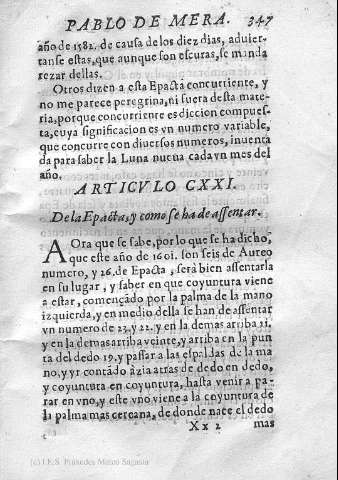 PABLO DE MERA. 347
año de 1582. de causa de los diez dias, aduier-
tanse estas, que aunque son escuras, se manda
rezar dellas.
Otros dizen a esta Epacta concurriente, y
no me parece peregrina, ni fuera desta mate-
ria, porque concurriente es diccion compues-
ta, cuya significacion es vn numero variable,
que concurre con diuersos numeros, inuenta
da para saber la Luna nueua cada vn mes del
año.
ARTICVLO CXXI.
De la Epacta, y como se ha de assentar.
AOra que se sabe, por lo que se ha dicho,
que este año de 1601. son seis de Aureo
numero, y 26. de Epacta, serà bien assentarla
en su lugar, y saber en que coyuntura viene
a estar, començado por la palma de la mano
izquierda, y en medio della se han de assentar
vn numero de 23. y 22. y en la demas arriba 21.
y en la demas arriba veinte, y arriba en la pun
ta del dedo 19. y passar a las espaldas de la ma
no, y yr contādo àzia atras de dedo en dedo,
y coyuntura en coyuntura, hasta venir a pa-
rar en vno, y este vno viene a la coyuntura de
la palma mas cercana, de donde nace el dedo
Xx 2 mas
(c) I.E.S. Práxedes Mateo Sagasta